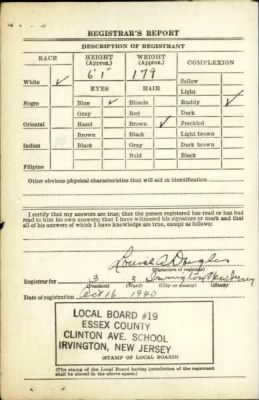 REGISTRAR'S REPORT
DESCRIPTION OF REGISTRANT
RACE HEIGHT (Approx.) WEIGHT (Approx.) COMPLEXION
6'1" 179
White ✓ Sallow
EYES HAIR Light
Negro Blue ✓ Blonde Ruddy ✓
Gray Red Dark
Oriental Hazel Brown ✓ Freckled
Brown Black Light brown
Indian Black Gray Dark brown
Bald Black
Filipino
Other obvious physical characteristics that will aid in identification
I certify that my answers are true; that the person registered has read or has had
read to him his own answers; that I have witnessed his signature or mark and that
all of his answers of which I have knowledge are true, except as follows:
Louise A. Douglas
(Signature of registrar)
Registrar for 3 3 Irvington New Jersey
(Precinct) (Ward) (City or county) (State)
Date of registration Oct 16 1940
LOCAL BOARD #19
ESSEX COUNTY
CLINTON AVE. SCHOOL
IRVINGTON, NEW JERSEY
(STAMP OF LOCAL BOARD)
(The stamp of the Local Board having jurisdiction of the registrant
shall be placed in the above space.)